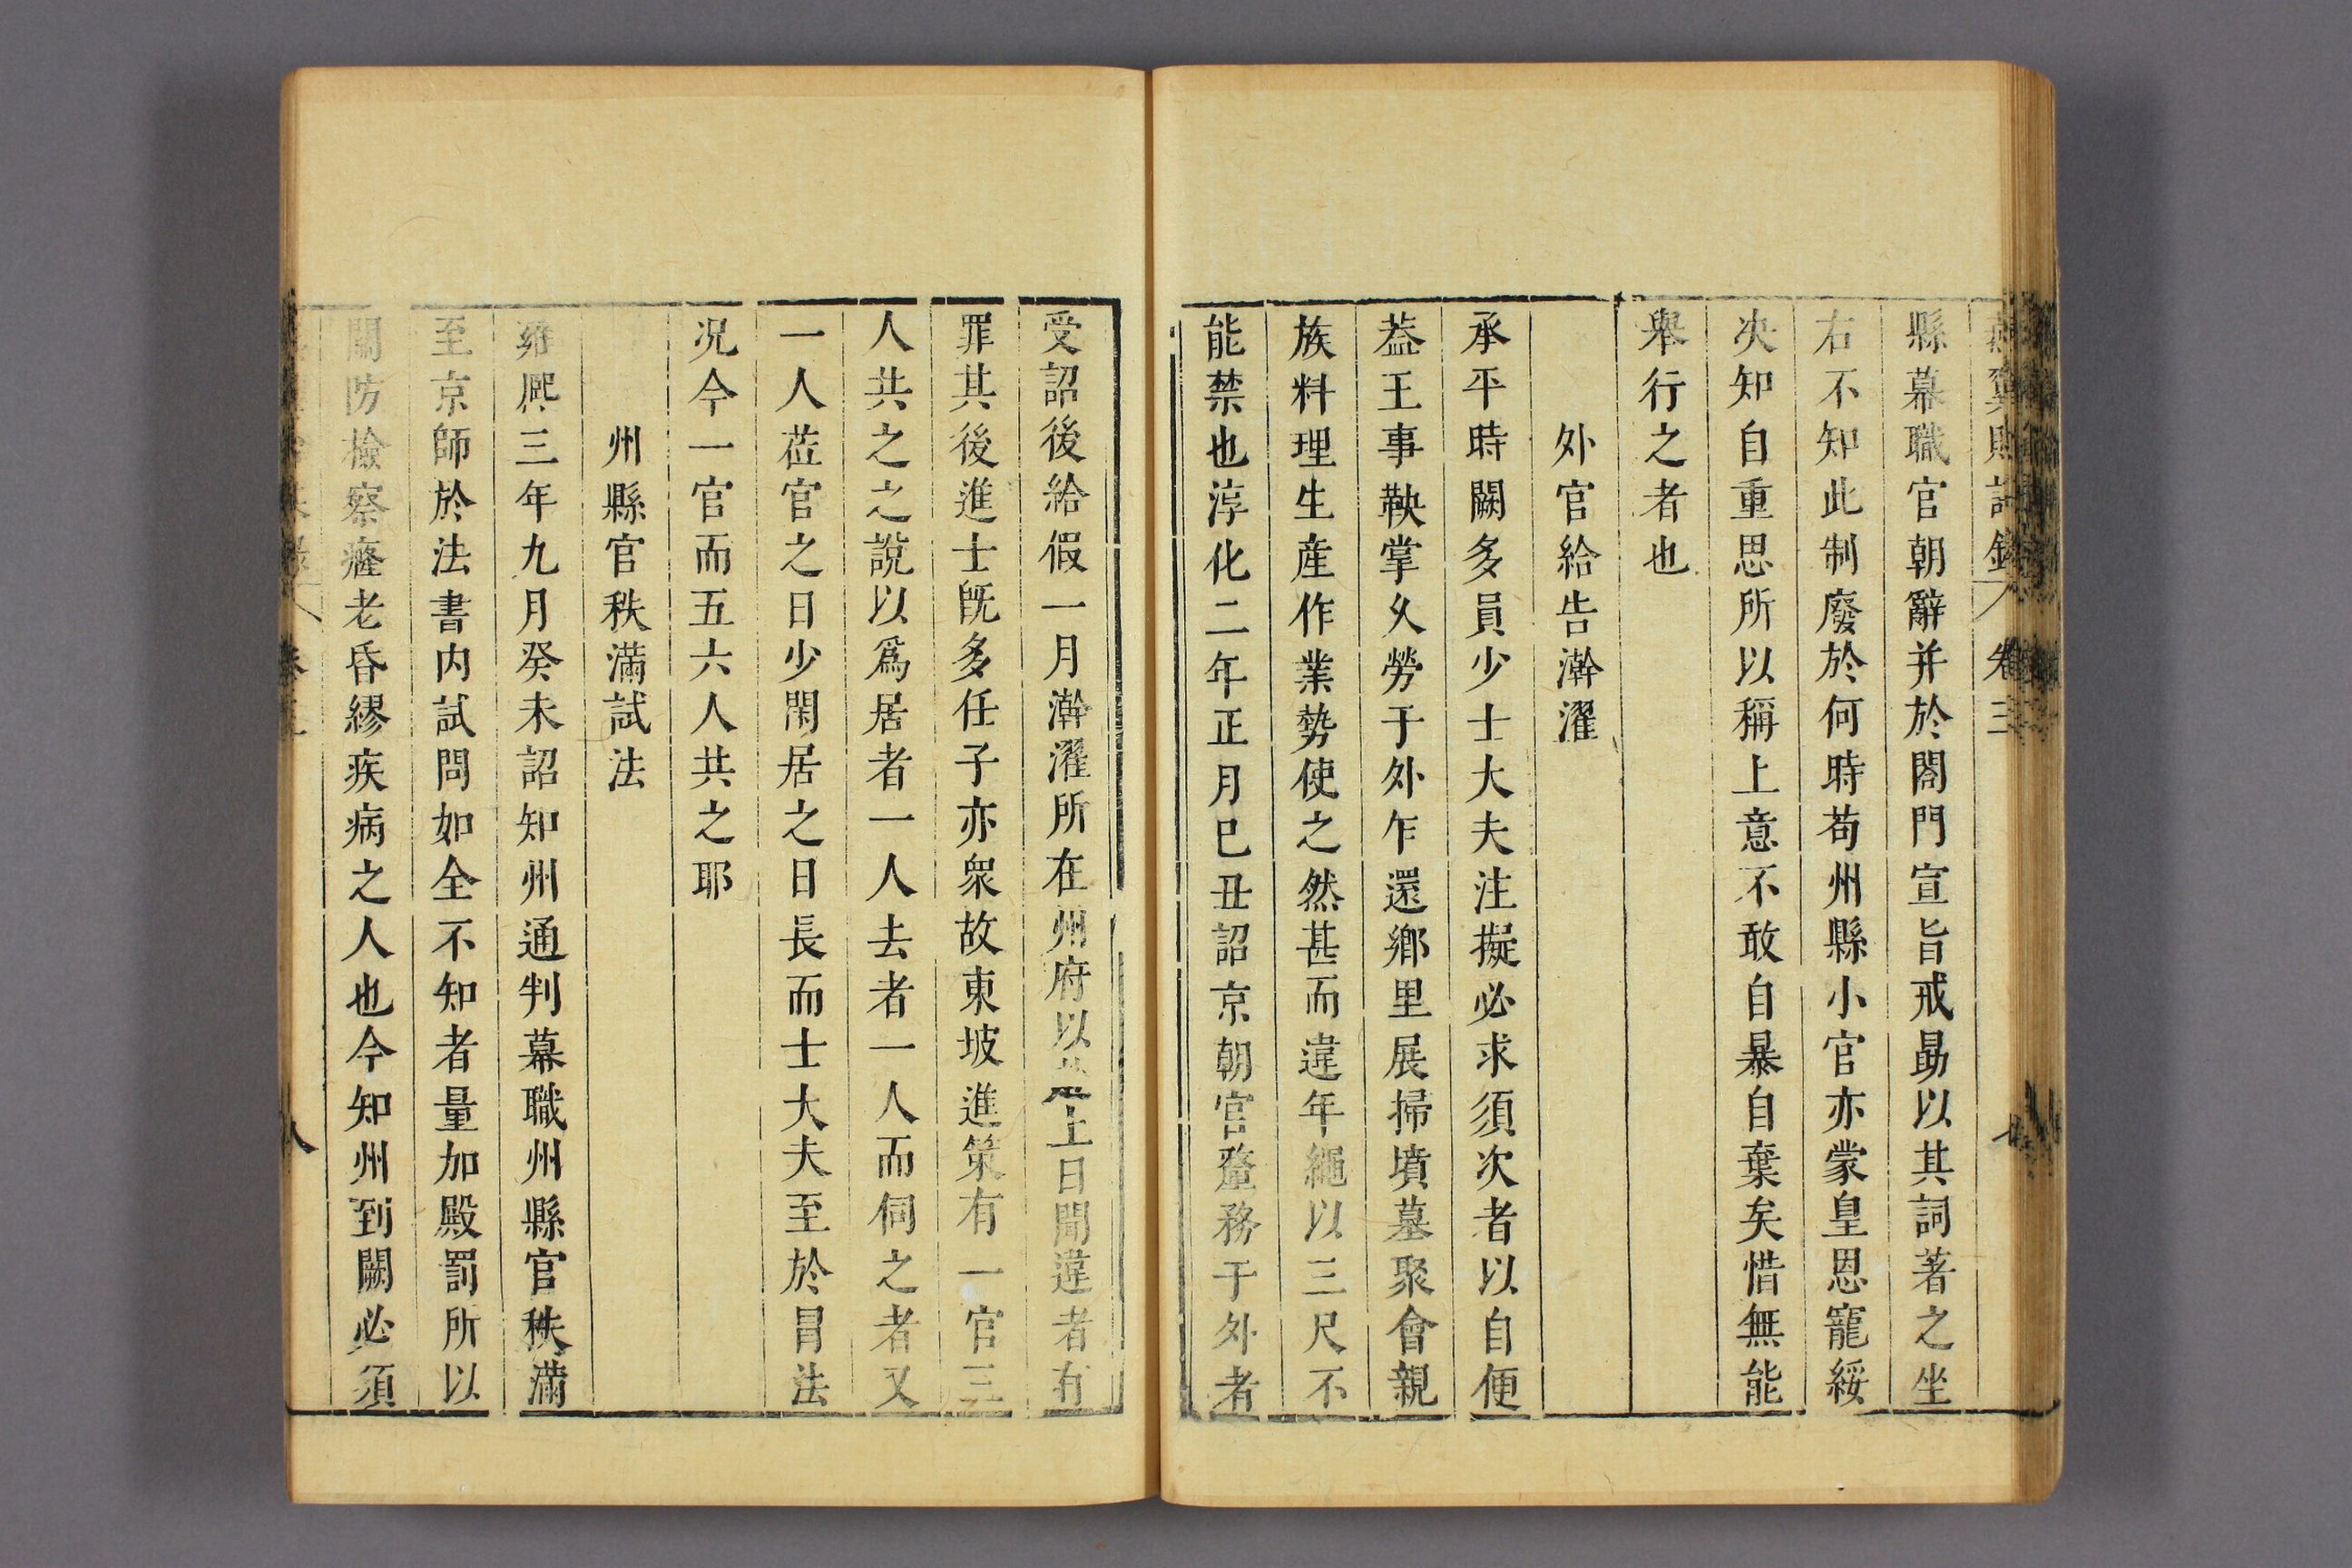 燕翼貽謀錄 卷三 七
縣幕職官朝辭并於閤門宣旨戒勗以其詞著之坐
右不知此制廢於何時苟州縣小官亦蒙皇恩寵綏
决知自重思所以稱上意不敢自暴自棄矣惜無能
舉行之者也
外官給告澣濯
承平時闕多員少士大夫注擬必求須次者以自便
葢王事鞅掌久勞于外乍還鄉里展掃墳墓聚會親
族料理生產作業勢使之然甚而違年繩以三尺不
能禁也淳化二年正月巳丑詔京朝官釐務于外者
受詔後給假一月澣濯所在州府以 上日聞違者有
罪其後進士旣多任子亦衆故東坡進策有一官三
人共之之說以爲居者一人去者一人而伺之者又
一人莅官之日少閑居之日長而士大夫至於冒法
况今一官而五六人共之耶
州縣官秩滿試法
雍熈三年九月癸未詔知州通判幕職州縣官秩滿
至京師於法書内試問如全不知者量加殿罰所以
關防檢察癃老昏繆疾病之人也今知州到闕必須
卷三 八